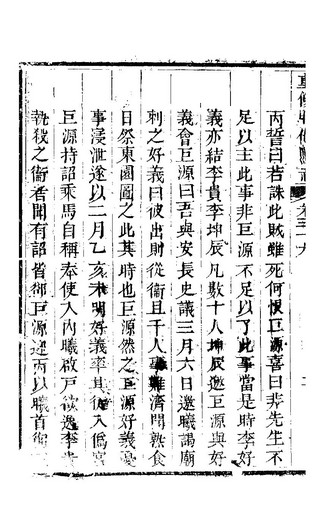 丙誓曰若誅此賊雖死何恨巨源喜曰非先生不
足以主此事非巨源不足以了此事當是時李好
義亦結李貴李坤辰凡數十人坤辰邀巨源與好
義會巨源曰吾與安長史議三月六日邀曦謁廟
刺之好義曰彼出則從衛且千人事難濟聞熟食
日祭東園圖之此其時也巨源然之巨源好義憂
事浸泄遂以二月乙亥未明好義率其徒入僞宮
巨源持詔乘馬自稱奉使入內曦啟戶欲逸李貴
執殺之衛者聞有詔皆卻巨源迎丙以曦首